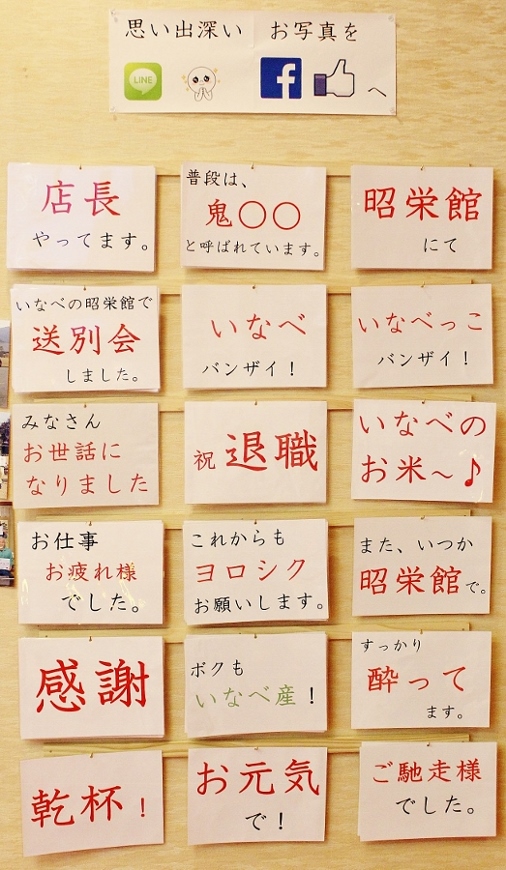 思い出深い お写真を
LINE
f
へ
店長
やってます。
普段は、
鬼〇〇
と呼ばれています。
昭栄館
にて
いなべの昭栄館で
送別会
しました。
いなべ
バンザイ！
いなべっこ
バンザイ！
みなさん
お世話に
なりました
祝 退職
いなべの
お米～♪
お仕事
お疲れ様
でした。
これからも
ヨロシク
お願いします。
また、いつか
昭栄館で。
感謝
ボクも
いなべ産！
すっかり
酔って
ます。
乾杯！
お元気
で！
ご馳走様
でした。